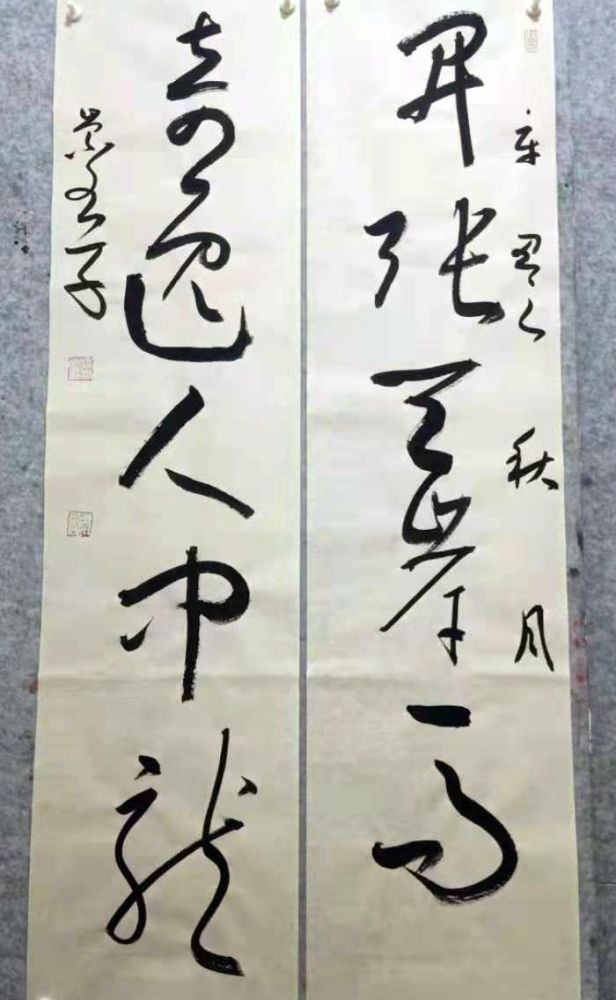 开张天岸马
辛丑之秋月
奇逸人中龙